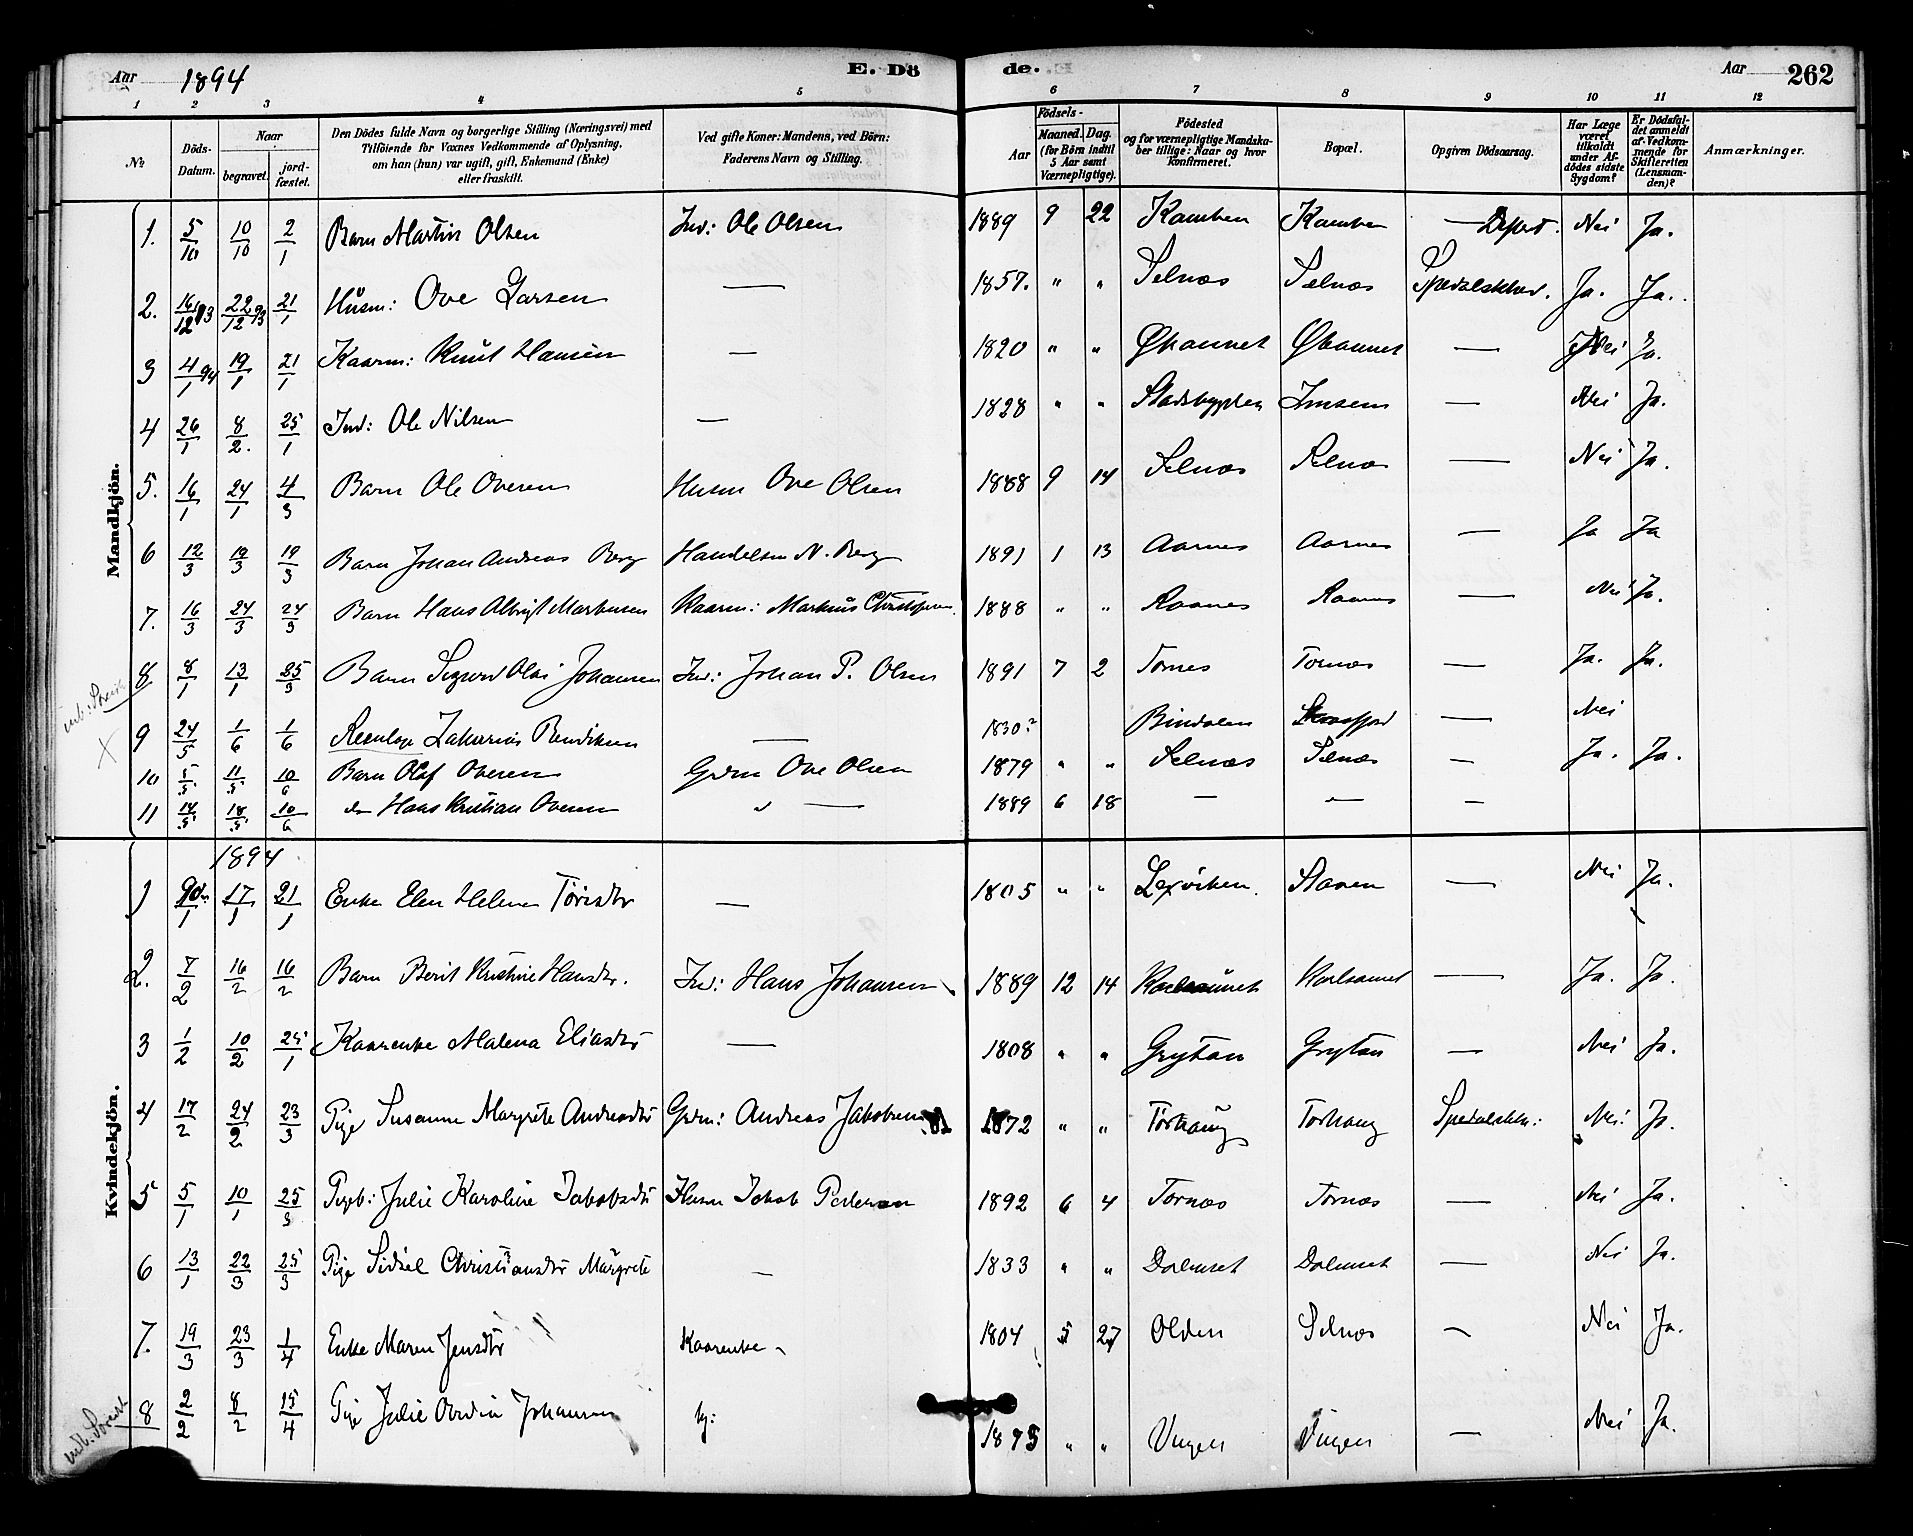 Aar 1894 E. Dö de. Aar 262
1 2 3 4 5 6 7 8 9 10 11 12
№ Döds-Datum. Naar begravet. jordfæstet. Den Dödes fulde Navn og borgerlige Stilling (Næringsvei) med Tilföiende for Voxnes Vedkommende af Oplysning, om han (hun) var ugift, gift, Enkemand (Enke) eller fraskilt. Ved gifte Koner: Mandens, ved Börn: Faderens Navn og Stilling. Födsels- Aar Maaned. Dag. (for Börn indtil 5 Aar samt Værnepligtige). Födested og for værnepligtige Mandskaber tillige: Naar og hvor konfirmeret. Bopæl. Opgiven Dödsaarsag. Har Læge været tilkaldt under Afdödes sidste Sygdom? Er Dödsfaldet anmeldt af Vedkommende for Skifteretten (Lensmanden)? Anmærkninger.
Mandkjön.
1. 5/10 10/10 2/1 Barn Martin Olsen Ind: Ole Olsen 1889 9 22 Nei Ja.
2. 16/12 93 22/12 93 21/1 Husm: Ove Larsen — 1857. " " Selnæs Selnæs Ja. Ja.
3 4/1 94 19/1 21/1 Kaarm: Knut Hansen — 1820 " " — Nei Ja.
4 26/1 8/2. 25/1 Ind: Ole Nilsen — 1828 " " Stadsbygden — Nei Ja.
5. 16/1 24/1 4/3 Barn Ole Ovesen Husm Ove Olsen 1888 9 14 Selnæs Selnæs — Nei Ja.
6 12/3 19/3 19/3 Barn Johan Andreas Berg Handelsm N. Berg 1891 1 13 Aarnes Aarnes — Ja Ja
7. 16/3 24/3 24/3 Barn Hans Albrigt Markusen Kaarm: Markus Christophersen 1888 " " Raanes Raanes — Nei Ja.
8 8/1 13/1 25/3 Barn Sigurd Olai Johansen Ind: Johan P. Olsen 1891 7 2 Tornes Tornæs — Ja. Ja.
9 24/5 1/6 1/6 Zakarias Bendiksen — 1830? Bindalen — Nei
10 5/5 11/5 10/6 Barn Olaf Ovesen Grdm Ove Olsen 1879 " " Selnæs Selnæs — Ja. Ja.
11 14/5 18/5 10/6 do Hans Kristian Ovesen " — 1889 6 18 — — —
Kvindekjön.
1894
1 17/1 21/1 Enke Elen Helene — 1805 " " Lexviken. Staven — Nei Ja.
2. 7/2 16/2 16/2 Barn Berit Kristine Hansdtr. Ind: Hans Johansen 1889 12 14 — Ja. Ja.
3 1/2 10/2 25/1 Kaarenke Malena Eliasdtr — 1808 " " Grytan Grytan — Nei Ja.
4 17/2 24/2 23/3 Pige Susanna Margrete Andreasdtr Grdm: Andreas Jakobsen 1872 " " Torhaug Torhaug Spedalskh: Nei. Ja.
5 5/1 10/1 25/3 Pigeb: Julie Karoline Jakobsdtr Husm Jakob Pedersen 1892 6 4 Tornæs Tornæs — Nei Ja.
6 13/1 22/3 25/3 Pige Sidsel Christiansdtr Margrete — 1833 " " — Nei Ja.
7. 19/3 23/3 1/4 Enke Maren Jensdtr Kaarenke 1804 5 27 Olden Selnæs — Nei Ja.
8 2/2 8/2 15/4 Pige Julie Johansen 1875 " " — Nei Ja.